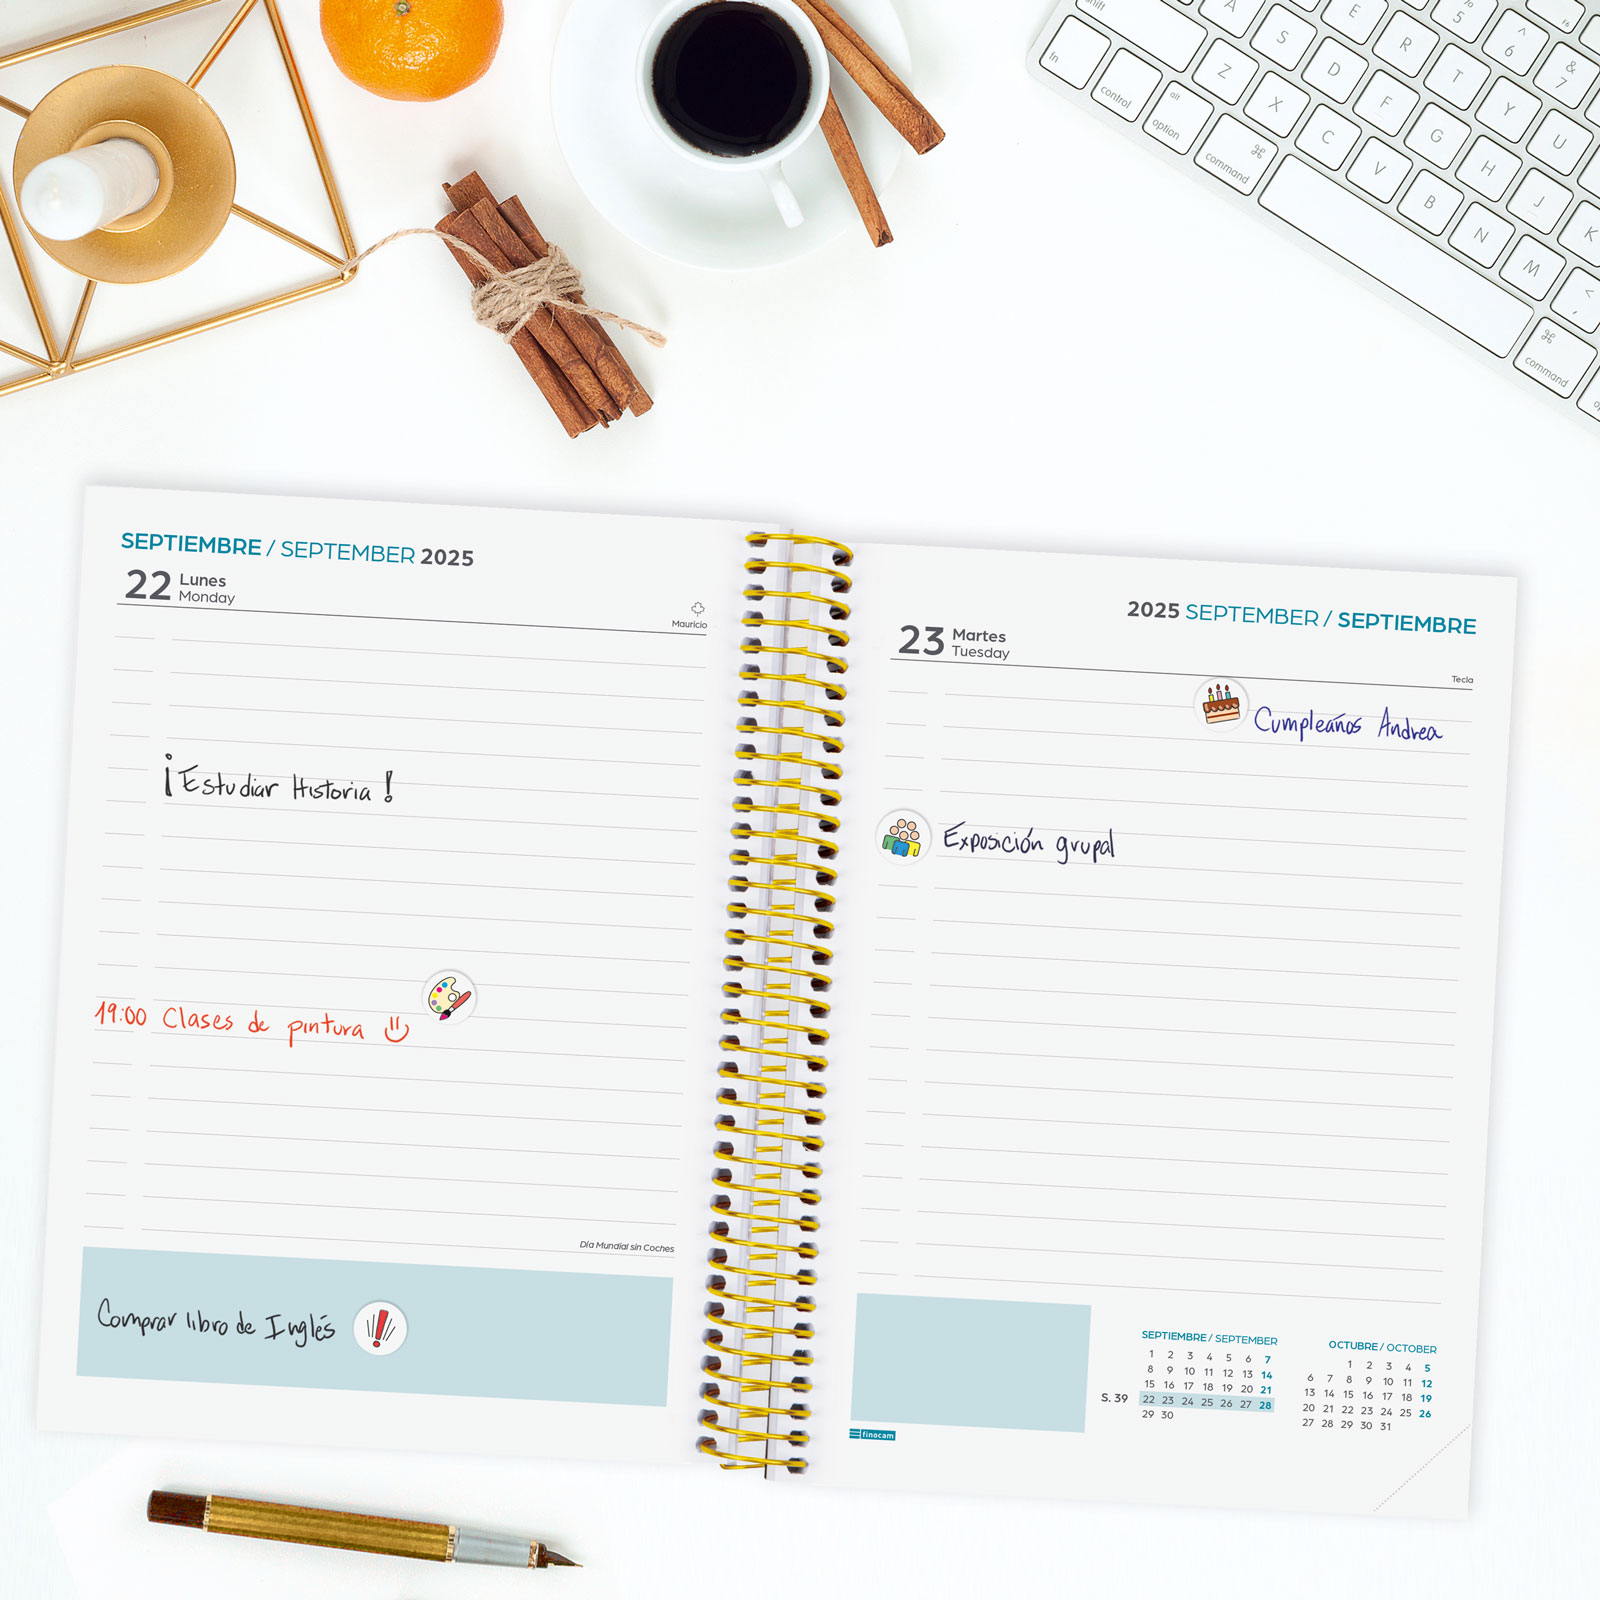 shift
A
E
R
%
5
^
6
&
7
fn
control
alt
option
command
⌘
S
D
F
T
Y
U
Z
X
C
G
H
J
K
V
B
N
M
<
,
⌘
command
SEPTIEMBRE / SEPTEMBER 2025
22 Lunes
Monday
Mauricio
¡Estudiar Historia!
19:00 Clases de pintura
Día Mundial sin Coches
Comprar libro de Inglés
2025 SEPTEMBER / SEPTIEMBRE
23 Martes
Tuesday
Tecla
Cumpleaños Andrea
Exposición grupal
finocam
SEPTIEMBRE / SEPTEMBER
1 2 3 4 5 6 7
8 9 10 11 12 13 14
15 16 17 18 19 20 21
S. 39 22 23 24 25 26 27 28
29 30
OCTUBRE / OCTOBER
1 2 3 4 5
6 7 8 9 10 11 12
13 14 15 16 17 18 19
20 21 22 23 24 25 26
27 28 29 30 31